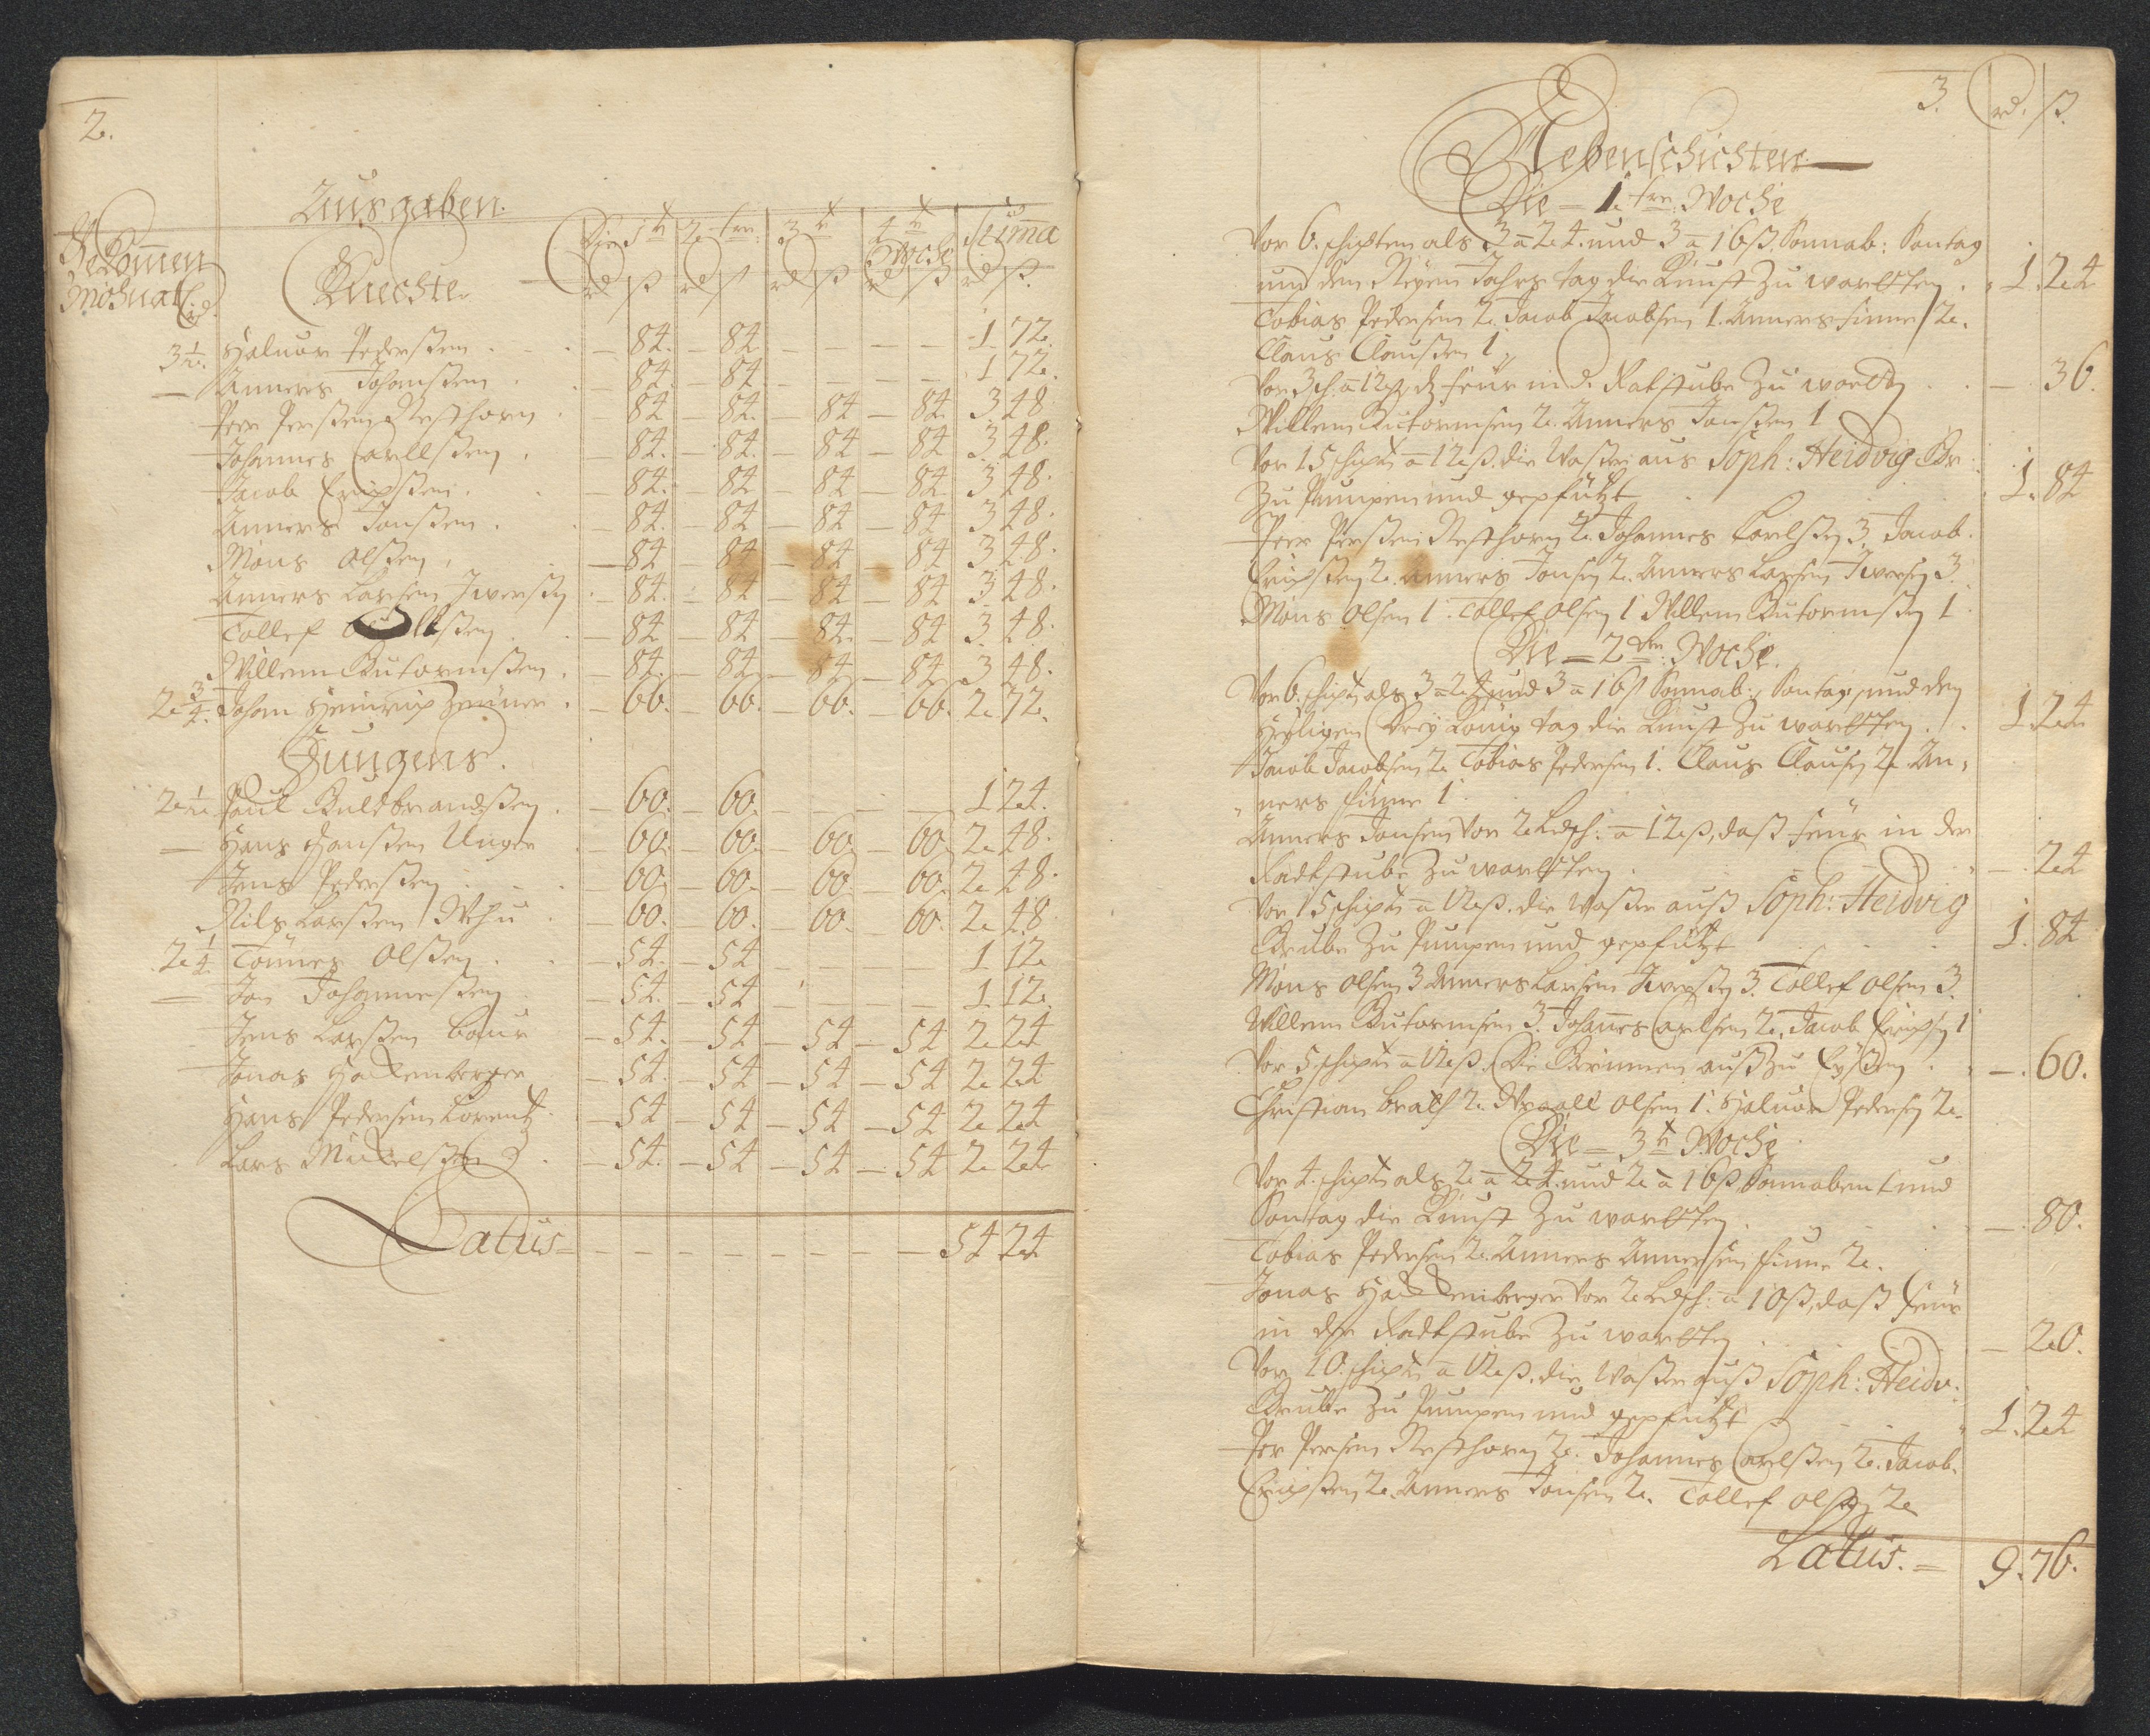 2.
Ausgaben.
Bekom̄en Mohnatl: rd.
Knechte
Die 1te 2tre: 3te 4te Woche Sum̄a
rd ß rd ß rd ß rd ß rd ß.
3 1/2. Haluor Pedersten . . . — 84. — 84 — — — — 1 72.
— Anners Johansten . — 84. — 84. — — — — 1 72.
Peer Persten Resthorn . 84 — 84. — 84 — 84. 3 48
Johannes Carllsten . — 84. — 84. — 84 — 84 3 48.
Jacob Erichsten . . — 84. — 84 — 84 — 84 3 48.
Anners Jonsten . . — 84. — 84 — 84 — 84 3 48.
Mons Olsten . . — 84 — 84 — 84 — 84 3 48.
Anners Larsen Iversten . — 84. — 84 — 84 — 84 3 48.
Tollef Ollsten . . — 84 — 84 — 84. — 84 3 48.
Willem Gutormsten . — 84. — 84 — 84 — 84 3 48.
2 3/4. Johan Heinrich Zenner . — 66. — 66. — 66. — 66. 2 72.
Jungens.
2 1/2 Poul Guldbrandsten . — 60. — 60. — — — — 1 24.
— Hans Hansten Unger . — 60. — 60. — 60. — 60. 2 48.
Jens Pedersten . . . — 60. — 60. — 60. — 60. 2 48.
Nils Larsten Whu . — 60. — 60. — 60. — 60. 2 48
2 1/4. Tönnes Olsten . . — 54. — 54 — — — — 1 12
— Jon Johannesten . — 54. — 54 — — — — 1 12.
Jens Larsten Baur — 54. — 54 — 54 — 54 2 24
Jonas Hackenberger — 54. — 54 — 54 — 54 2 24
Hans Pedersen Lorentz . — 54 — 54 — 54 — 54 2 24
Lars Mickelsten . — 54. — 54 — 54 — 54 2 24
Latus — — — — — — — — 54 24
3. rd. ß.
Nebenschichten
Die — 1.tre Woche
Vor 6. schichten als 3 a 24. und 3 a 16 ß. Sonnab: Sontag
und den Neyen Jahrs tag die Kunst zu wartten . . 1. 24
Tobias Pedersen 2. Jacob Jacobsen 1. Anners Finne 2.
Claus Clausten 1
Vor 3 sch. a 12 ß dz feur in d. Radtstube zu wartten . . — 36.
Willem Gutormsen 2. Anners Jonsten 1
Vor 15 schicht a 12 ß. die Waster aus Soph: Heidvig Gr:
zu Pumpen und gepfützt . . 1. 84
Peer Persten Resthorn 2. Johannes Carlsten 3. Jacob
Erichsten 2. Anners Jonsen 2. Anners Larsen Iversen 3.
Mons Olsen 1. Tollef Olsen 1 Willem Gutormsten 1
Die — 2tre: Woche.
Vor 6. schicht als 3 a 24 und 3 a 16 ß Sonnab:, Sontag, und den
Heyligen Drey König tag die Kunst zu wartten . . 1. 24
Jacob Jacobsen 2 Tobias Pedersen 1. Claus Clausen 2 An,
ners Finne 1.
Anners Jonsen vor 2 Ledsch: a 12 ß, daß feur in der
Radtstube zu wartten . . — 24
Vor 15 schicht a 12 ß. die Waster auß Soph: Heidvig
Grube zu Pumpen und gepfützt . . . 1. 84
Mons Olsen 3 Anners Larsen Iversten 3. Tollef Olsen 3.
Willem Gutormsen 3. Johan̄es Carlsen 2. Jacob Erichsen 1
Vor 5 schicht a 12 ß. die Brunnen auß zu Eysten . . — 60.
Christian Bratt 2. Nyroll Olsen 1. Haluor Pedersen 2.
Die — 3te Woche
Vor 4. schicht als 2 a 24. und 2 a 16 ß Sonnabent und
Sontag die Kunst zu wartten . . . — 80.
Tobias Pedersen 2. Anners Annersen Finne 2.
Jonas Hackenberger vor 2 Ledsch: a 10 ß, daß feur
in der Radtstube zu wartten . . — 20.
Vor 10. schicht a 12 ß. die Waster auß Soph: Heidv:
Grube zu Pumpen und gepfützt . . . 1. 24
Per Persen Resthorn 2. Johannes Carlsten 2. Jacob
Erichsten 2. Anners Jonsen 2. Tollef Olsen 2
Latus. = 9. 76.